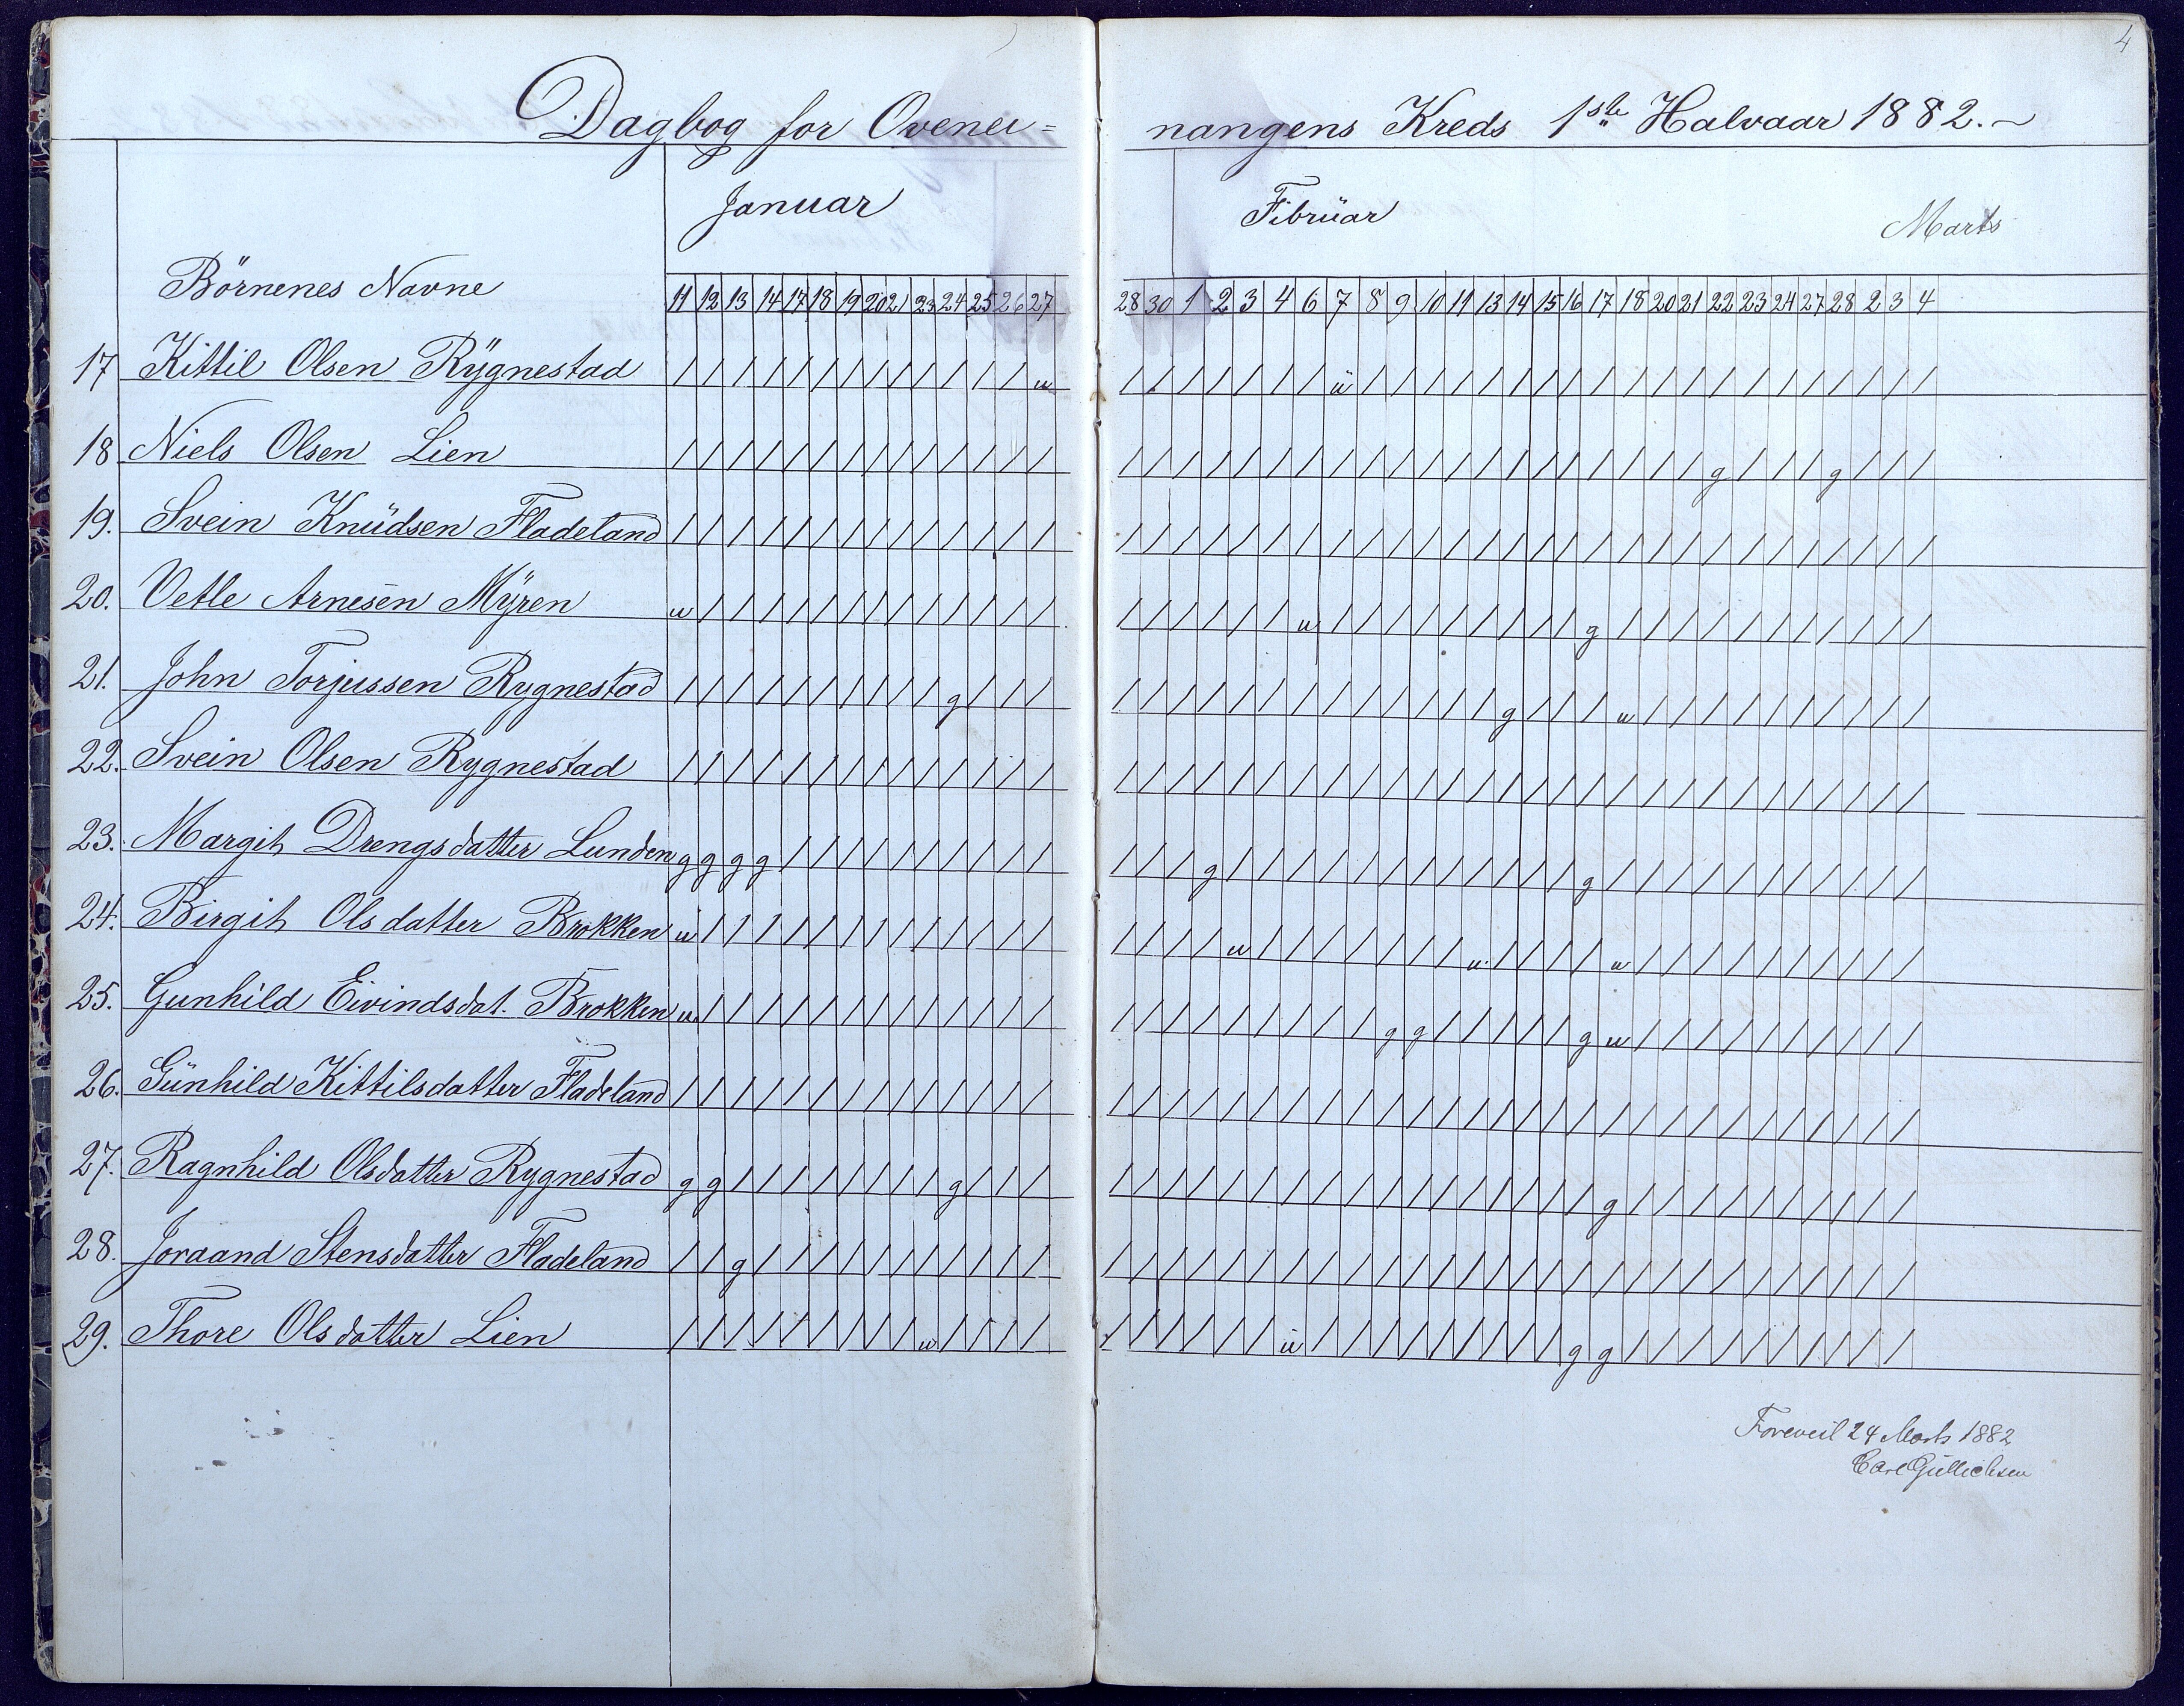 4
Dagbog for Ovenei= nangens Kreds 1ste Halvaar 1882.-
Januar Fibrüar Marts
Börnenes Navne 11 12 13 14 17 18 19 20 21 23 24 25 26 27 28 30 1 2 3 4 6 7 8 9 10 11 13 14 15 16 17 18 20 21 22 23 24 27 28 2 3 4
17 Kittil Olsen Rÿgnestad / / / / / / / / / / / / / u / / / / / / / ü / / / / / / / / / / / / / / / / / / / /
18 Niels Olsen Lien / / / / / / / / / / / / / / / / / / / / / / / / / / / / / / / / / / g / / / g / / /
19. Svein Knüdsen Fladeland / / / / / / / / / / / / / / / / / / / / / / / / / / / / / / / / / / / / / / / / / /
20. Vetle Arnesen Mÿren u / / / / / / / / / / / / / / / / / / / u / / / / / / / / / g / / / / / / / / / / /
21. John Torjussen Rygnestad / / / / / / / / / / g / / / / / / / / / / / / / / / / g / / / u / / / / / / / / / /
22. Svein Olsen Rygnestad / / / / / / / / / / / / / / / / / / / / / / / / / / / / / / / / / / / / / / / / / /
23. Margit Drengsdatter Lunden g g g g / / / / / / / / / / / / / g / / / / / / / / / / / / g / / / / / / / / / / /
24. Birgit Olsdatter Brokken u / / / / / / / / / / / / / / / / / u / / / / / / / u / / / / u / / / / / / / / / /
25. Gunhild Eivindsdat. Brokken u / / / / / / / / / / / / / / / / / / / / / / g g / / / / / g u / / / / / / / / / /
26. Günhild Kittilsdatter Fladeland / / / / / / / / / / / / / / / / / / / / / / / / / / / / / / / / / / / / / / / / / /
27. Ragnhild Olsdatter Rygnestad g g / / / / / / / / g / / / / / / / / / / / / / / / / / / / / g / / / / / / / / / /
28. Joraand Stensdatter Fladeland / / g / / / / / / / / / / / / / / / / / / / / / / / / / / / / / / / / / / / / / / /
29. Thore Olsdatter Lien / / / / / / / / / u / / / / / / / / / / ü / / / / / / / / / g g / / / / / / / / / /
Foreveist 24 Marts 1882
Carl Gullichsen